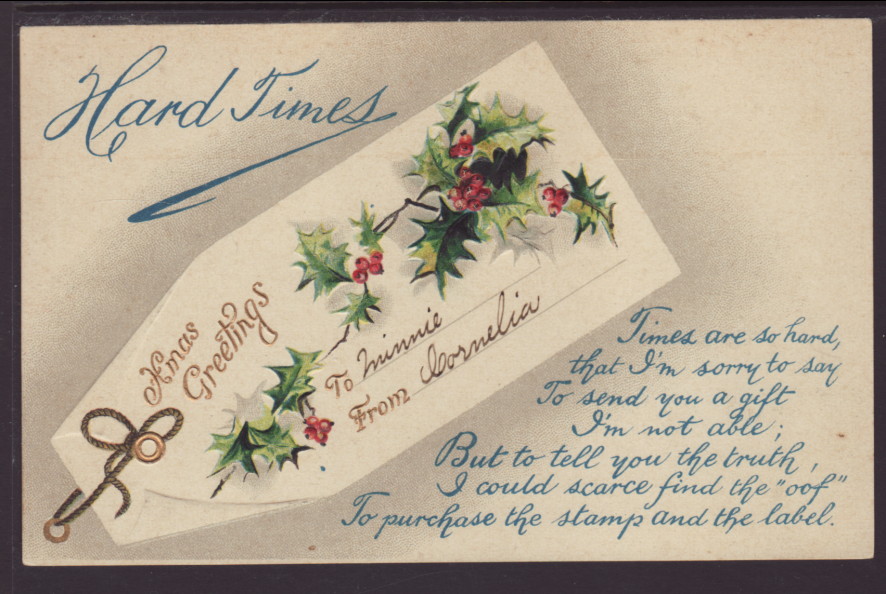 Hard Times
Xmas
Greetings
To Minnie
From Cornelia
Times are so hard,
that I'm sorry to say
To send you a gift
I'm not able;
But to tell you the truth,
I could scarce find the "oof"
To purchase the stamp and the label.